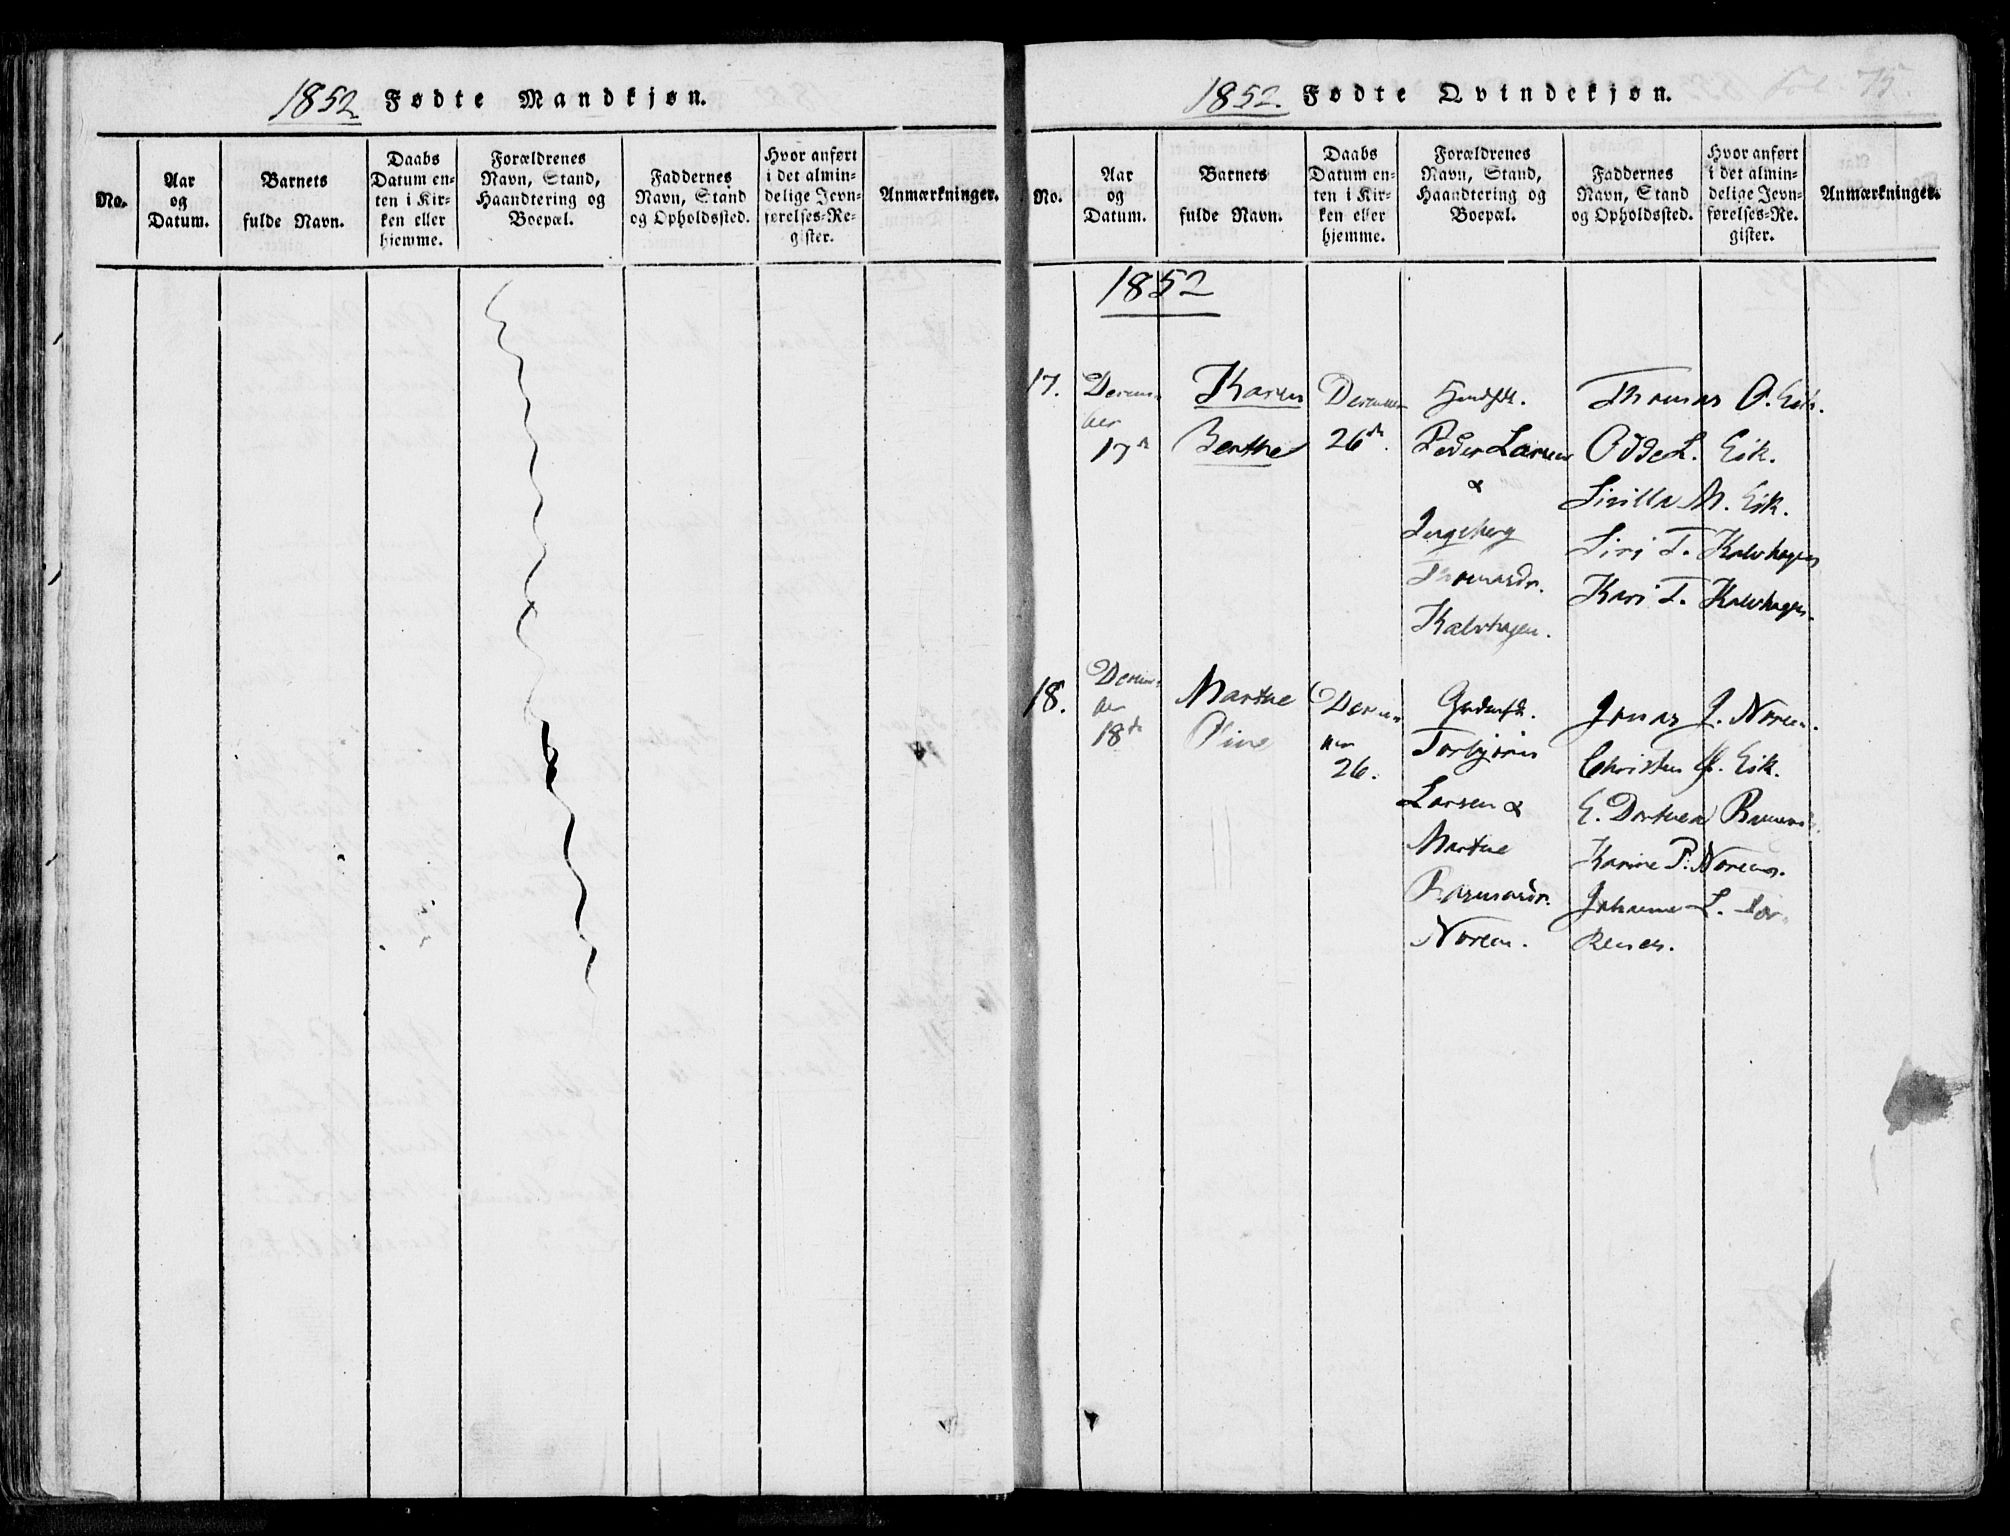 1852 Fødte Mandkjøn.
No.
Aar
og
Datum.
Barnets
fulde Navn.
Daabs
Datum en-
ten i Kir-
ken eller
hjemme.
Forældrenes
Navn, Stand,
Haandtering og
Boepæl.
Faddernes
Navn, Stand
og Opholdssted.
Hvor anført
i det almin-
delige Jevn-
førelses-Re-
gister.
Anmærkninger.
1852. Fødte Qvindekjøn.
Fol. 75.
No.
Aar
og
Datum.
Barnets
fulde Navn.
Daabs
Datum en-
ten i Kir-
ken eller
hjemme.
Forældrenes
Navn, Stand,
Haandtering og
Boepæl.
Faddernes
Navn, Stand
og Opholdssted.
Hvor anført
i det almin-
delige Jevn-
førelses-Re-
gister.
Anmærkninger.
1852
17.
Decem-
ber
17de
Karen
Berthe
December
26de.
Peder Larsen
&
Ingeborg
Thomasdr.
Kalvhagen.
Thomas O. Eik.
Odde L. Eik.
Sirilla M. Eik.
Siri T. Kalvhagen
Kari T. Kalvhagen.
18.
Decem-
ber
18de
Marthe
Oline
Decem-
ber
26.
Gaardmd.
Torbjørn
Larsen &
Marthe
Rasmusdr.
Noreim.
Jonas J. Noreim.
Christen H. Eik.
E. Dorthea
Karine P. Noreim.
Johanne L. Tor-